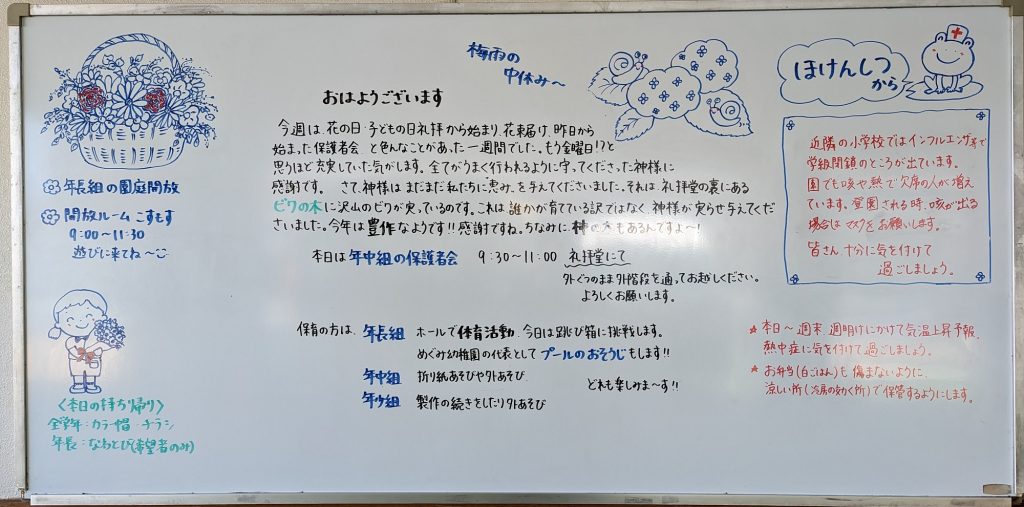 梅雨の
中休み～
おはようございます
今週は、花の日・子どもの日礼拝から始まり、花束届け、昨日から
始まった保護者会、と色んなことがあった一週間でした。もう金曜日!?と
思うほど充実していた気がします。全てがうまく行われるように守ってくださった神様に
感謝です。 さて、神様はまだまだ私たちに恵みを与えてくださいました。それは礼拝堂の裏にある
ビワの木に沢山のビワが実っているのです。これは誰かが育てている訳ではなく、神様が実らせ与えてくだ
さいました。今年は豊作なようです!!感謝ですね。ちなみに の木もあるんですよ～!
本日は年中組の保護者会 9:30～11:00 礼拝堂にて
外ぐつのまま外階段を通ってお越しください。
よろしくお願いします。
保育の方は、年長組 ホールで体育活動、今日は跳び箱に挑戦します。
めぐみ幼稚園の代表として プールのおそうじもします!!
年中組 折り紙あそびや外あそび
どれも楽しみま～す!!
年少組 製作の続きをしたり外あそび
年長組の園庭開放
開放ルーム こすもす
9:00～11:30
遊びに来てね～
〈本日の持ち帰り〉
全学年：カラー帽・チラシ
年長：なわとび(希望者のみ)
ほけんしつ
から
近隣の小学校ではインフルエンザ等で
学級閉鎖のところが出ています。
園でも咳や熱で欠席の人が増え
ています。登園される時、咳が出る
場合はマスクをお願いします。
皆さん、十分に気を付けて
過ごしましょう。
★本日～週末、週明けにかけて気温上昇予報、
熱中症に気を付けて過ごしましょう。
★お弁当(白ごはん)も傷まないように、
涼しい所(冷房の効く所)で保管するようにします。